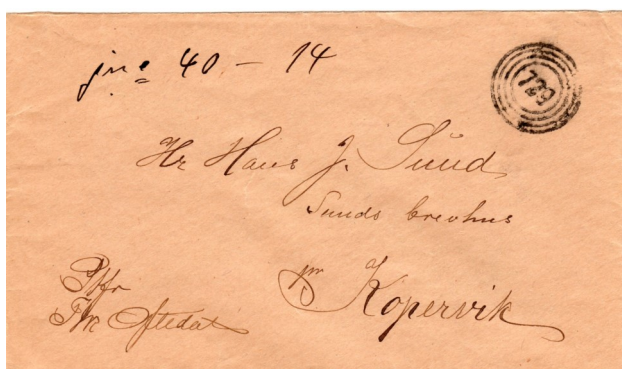 jn.e 40 - 14
729
Hr Hans J. Sund
Sunds brevhus
pr Kopervik
Fr. Oftedal